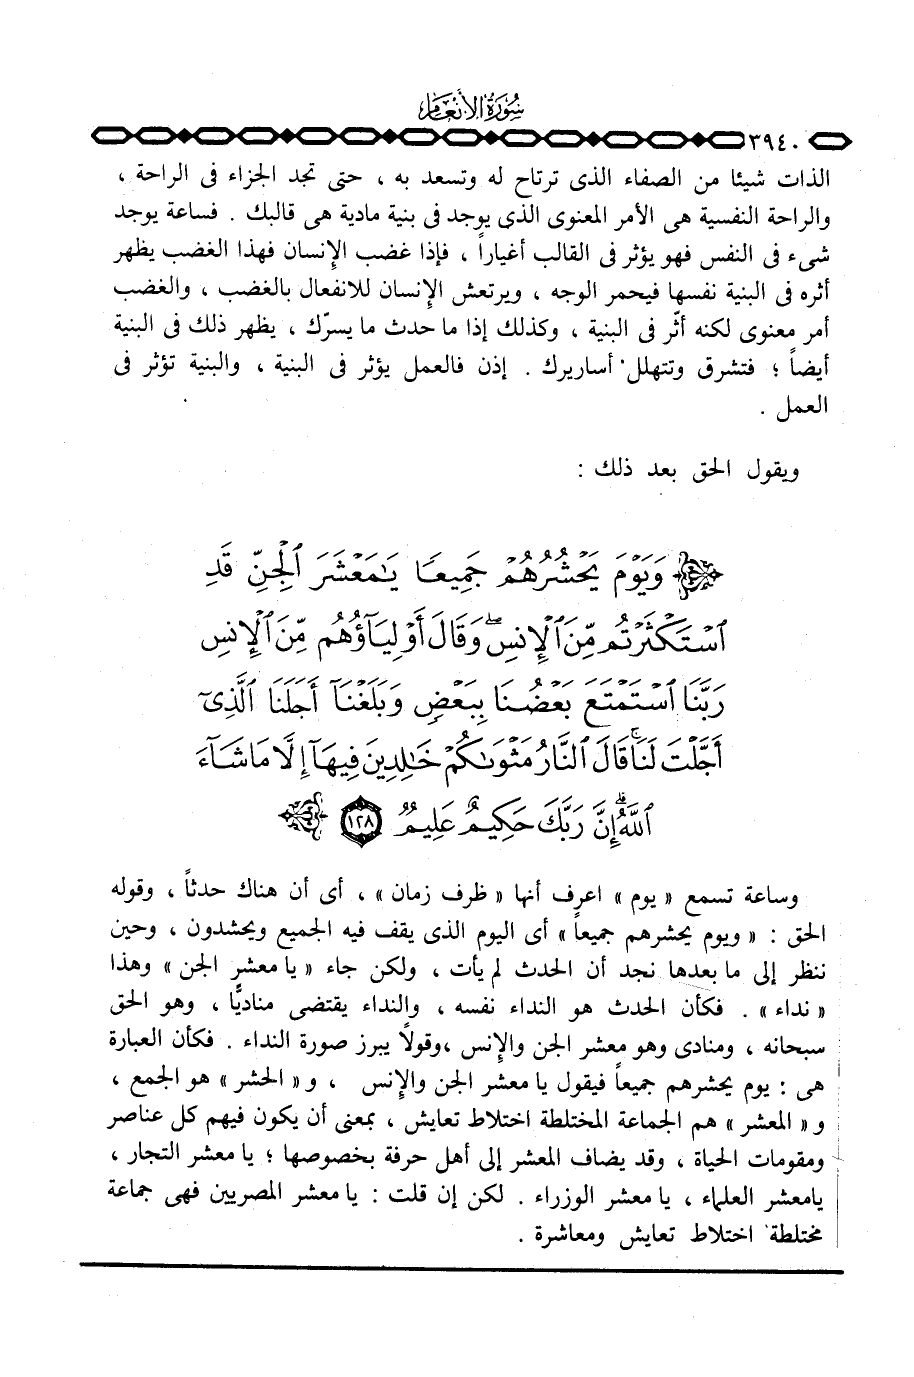 سورة الأنعام
٣٩٤٠
الذات شيئا من الصفاء الذى ترتاح له وتسعد به ، حتى تجد الجزاء فى الراحة ،
والراحة النفسية هى الأمر المعنوى الذى يوجد فى بنية مادية هى قالبك . فساعة يوجد
شىء فى النفس فهو يؤثر فى القالب أغياراً ، فإذا غضب الإنسان فهذا الغضب يظهر
أثره فى البنية نفسها فيحمر الوجه ، ويرتعش الإنسان للانفعال بالغضب ، والغضب
أمر معنوى لكنه أثّر فى البنية ، وكذلك إذا ما حدث ما يسرّك ، يظهر ذلك فى البنية
أيضاً ؛ فتشرق وتتهلل أساريرك . إذن فالعمل يؤثر فى البنية ، والبنية تؤثر فى
العمل .
ويقول الحق بعد ذلك :
وَيَوْمَ يَحْشُرُهُمْ جَمِيعًا يَٰمَعْشَرَ ٱلْجِنِّ قَدِ
ٱسْتَكْثَرْتُم مِّنَ ٱلْإِنسِ ۖ وَقَالَ أَوْلِيَآؤُهُم مِّنَ ٱلْإِنسِ
رَبَّنَا ٱسْتَمْتَعَ بَعْضُنَا بِبَعْضٍ وَبَلَغْنَآ أَجَلَنَا ٱلَّذِىٓ
أَجَّلْتَ لَنَا ۚ قَالَ ٱلنَّارُ مَثْوَىٰكُمْ خَٰلِدِينَ فِيهَآ إِلَّا مَا شَآءَ
ٱللَّهُ ۗ إِنَّ رَبَّكَ حَكِيمٌ عَلِيمٌ ١٢٨
وساعة تسمع « يوم » اعرف أنها « ظرف زمان » ، أى أن هناك حدثاً ، وقوله
الحق : « ويوم يحشرهم جميعاً » أى اليوم الذى يقف فيه الجميع ويحشدون ، وحين
ننظر إلى ما بعدها نجد أن الحدث لم يأت ، ولكن جاء « يا معشر الجن » وهذا
« نداء » . فكأن الحدث هو النداء نفسه ، والنداء يقتضى مناديًّا ، وهو الحق
سبحانه ، ومنادى وهو معشر الجن والإنس ،وقولاً يبرز صورة النداء . فكأن العبارة
هى : يوم يحشرهم جميعاً فيقول يا معشر الجن والإنس ، و « الحشر » هو الجمع ،
و « المعشر » هم الجماعة المختلطة اختلاط تعايش ، بمعنى أن يكون فيهم كل عناصر
ومقومات الحياة ، وقد يضاف المعشر إلى أهل حرفة بخصوصها ؛ يا معشر التجار ،
يامعشر العلماء ، يا معشر الوزراء . لكن إن قلت : يا معشر المصريين فهى جماعة
مختلطة اختلاط تعايش ومعاشرة .